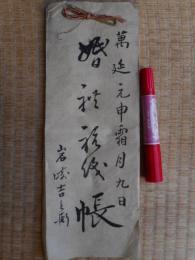 萬延元申霜月九日
婚禮祝儀帳
岩崎吉兵衛